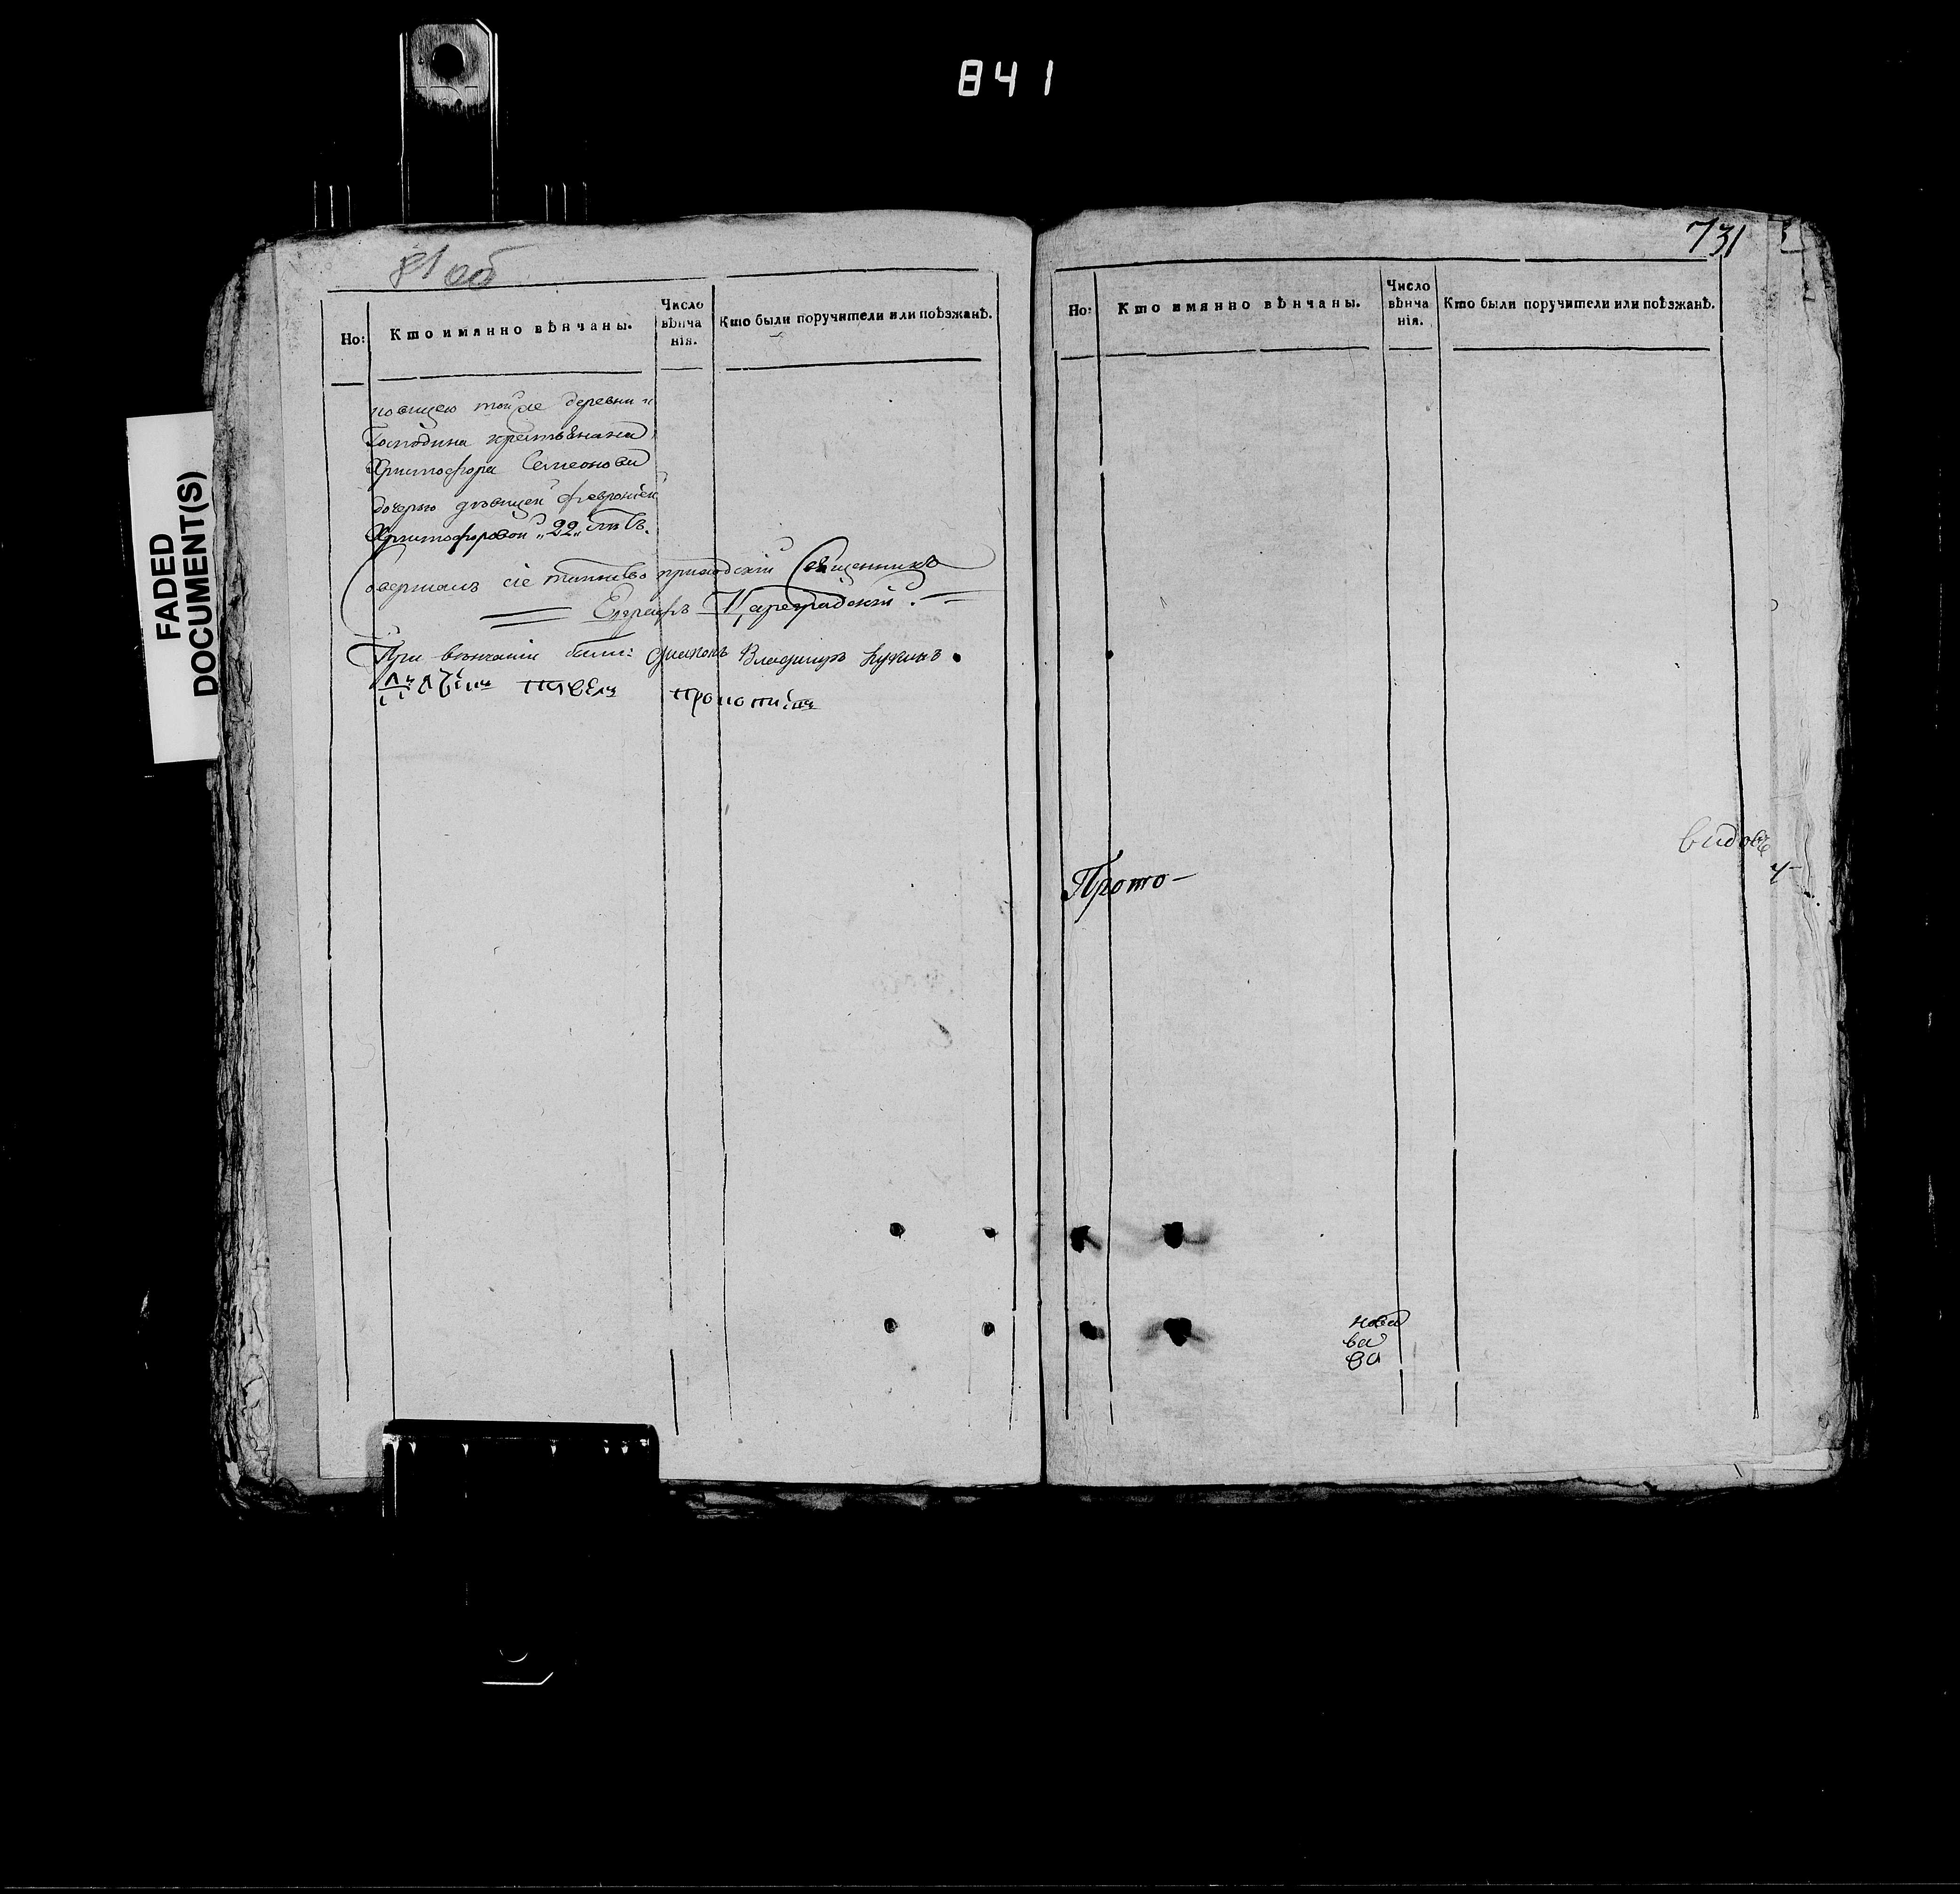 841
FADED
DOCUMENT(S)
81 об
Но:
Кто имянно вѣнчаны.
Число
вѣнча
нія.
Кто были поручители или поѣзжанѣ.
товящею тойже деревни и
Господина крестьянина
Христофора Семеонова
дочерью дѣвицей Февроніей
Христофоровой „22„ лѣтъ.
Совершалъ сіе таинство приходскій Священникъ
Ефремъ Цареградскій.
При вѣнчаніи были: діаконъ Владимиръ Лукинъ.
павелъ
731
Но:
Кто имянно вѣнчаны.
Число
вѣнча
нія.
Кто были поручители или поѣзжанѣ.
Прото-
ва